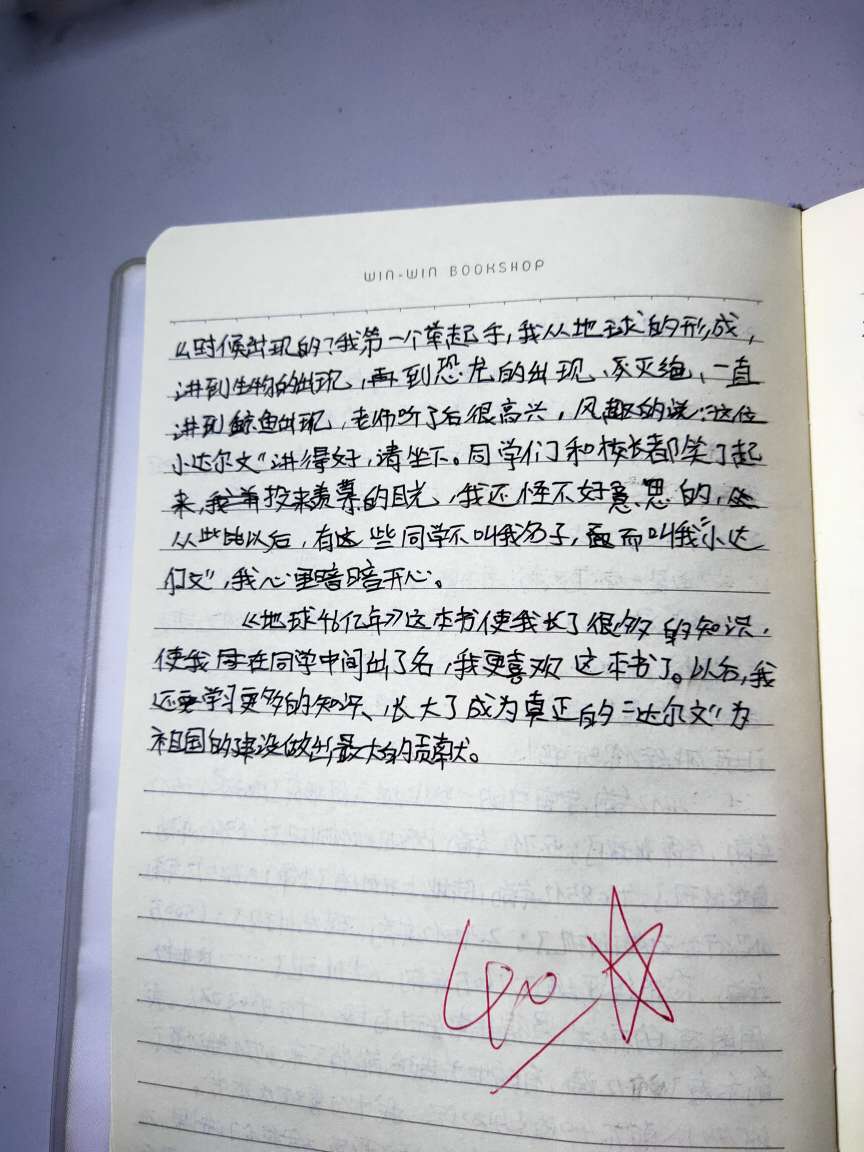 WIN-WIN BOOKSHOP
么时候出现的?我第一个举起手,我从地球的形成,
讲到生物的出现,再到恐龙的出现、灭绝,一直
讲到鲸鱼出现,老师听了后很高兴,风趣的说:"这位
小达尔文"讲得好,请坐下。同学们和校长都笑了起
来,投来羡慕的目光,我还怪不好意思的,
从此以后,有这些同学不叫我 子,而叫我"小达
们文",我心里暗暗开心。
《地球46亿年》这本书使我长了很多的知识,
使我在同学中间出了名,我更喜欢这本书了。以后,我
还要学习更多的知识、长大了成为真正的"达尔文"为
祖国的建设做出最大的贡献。